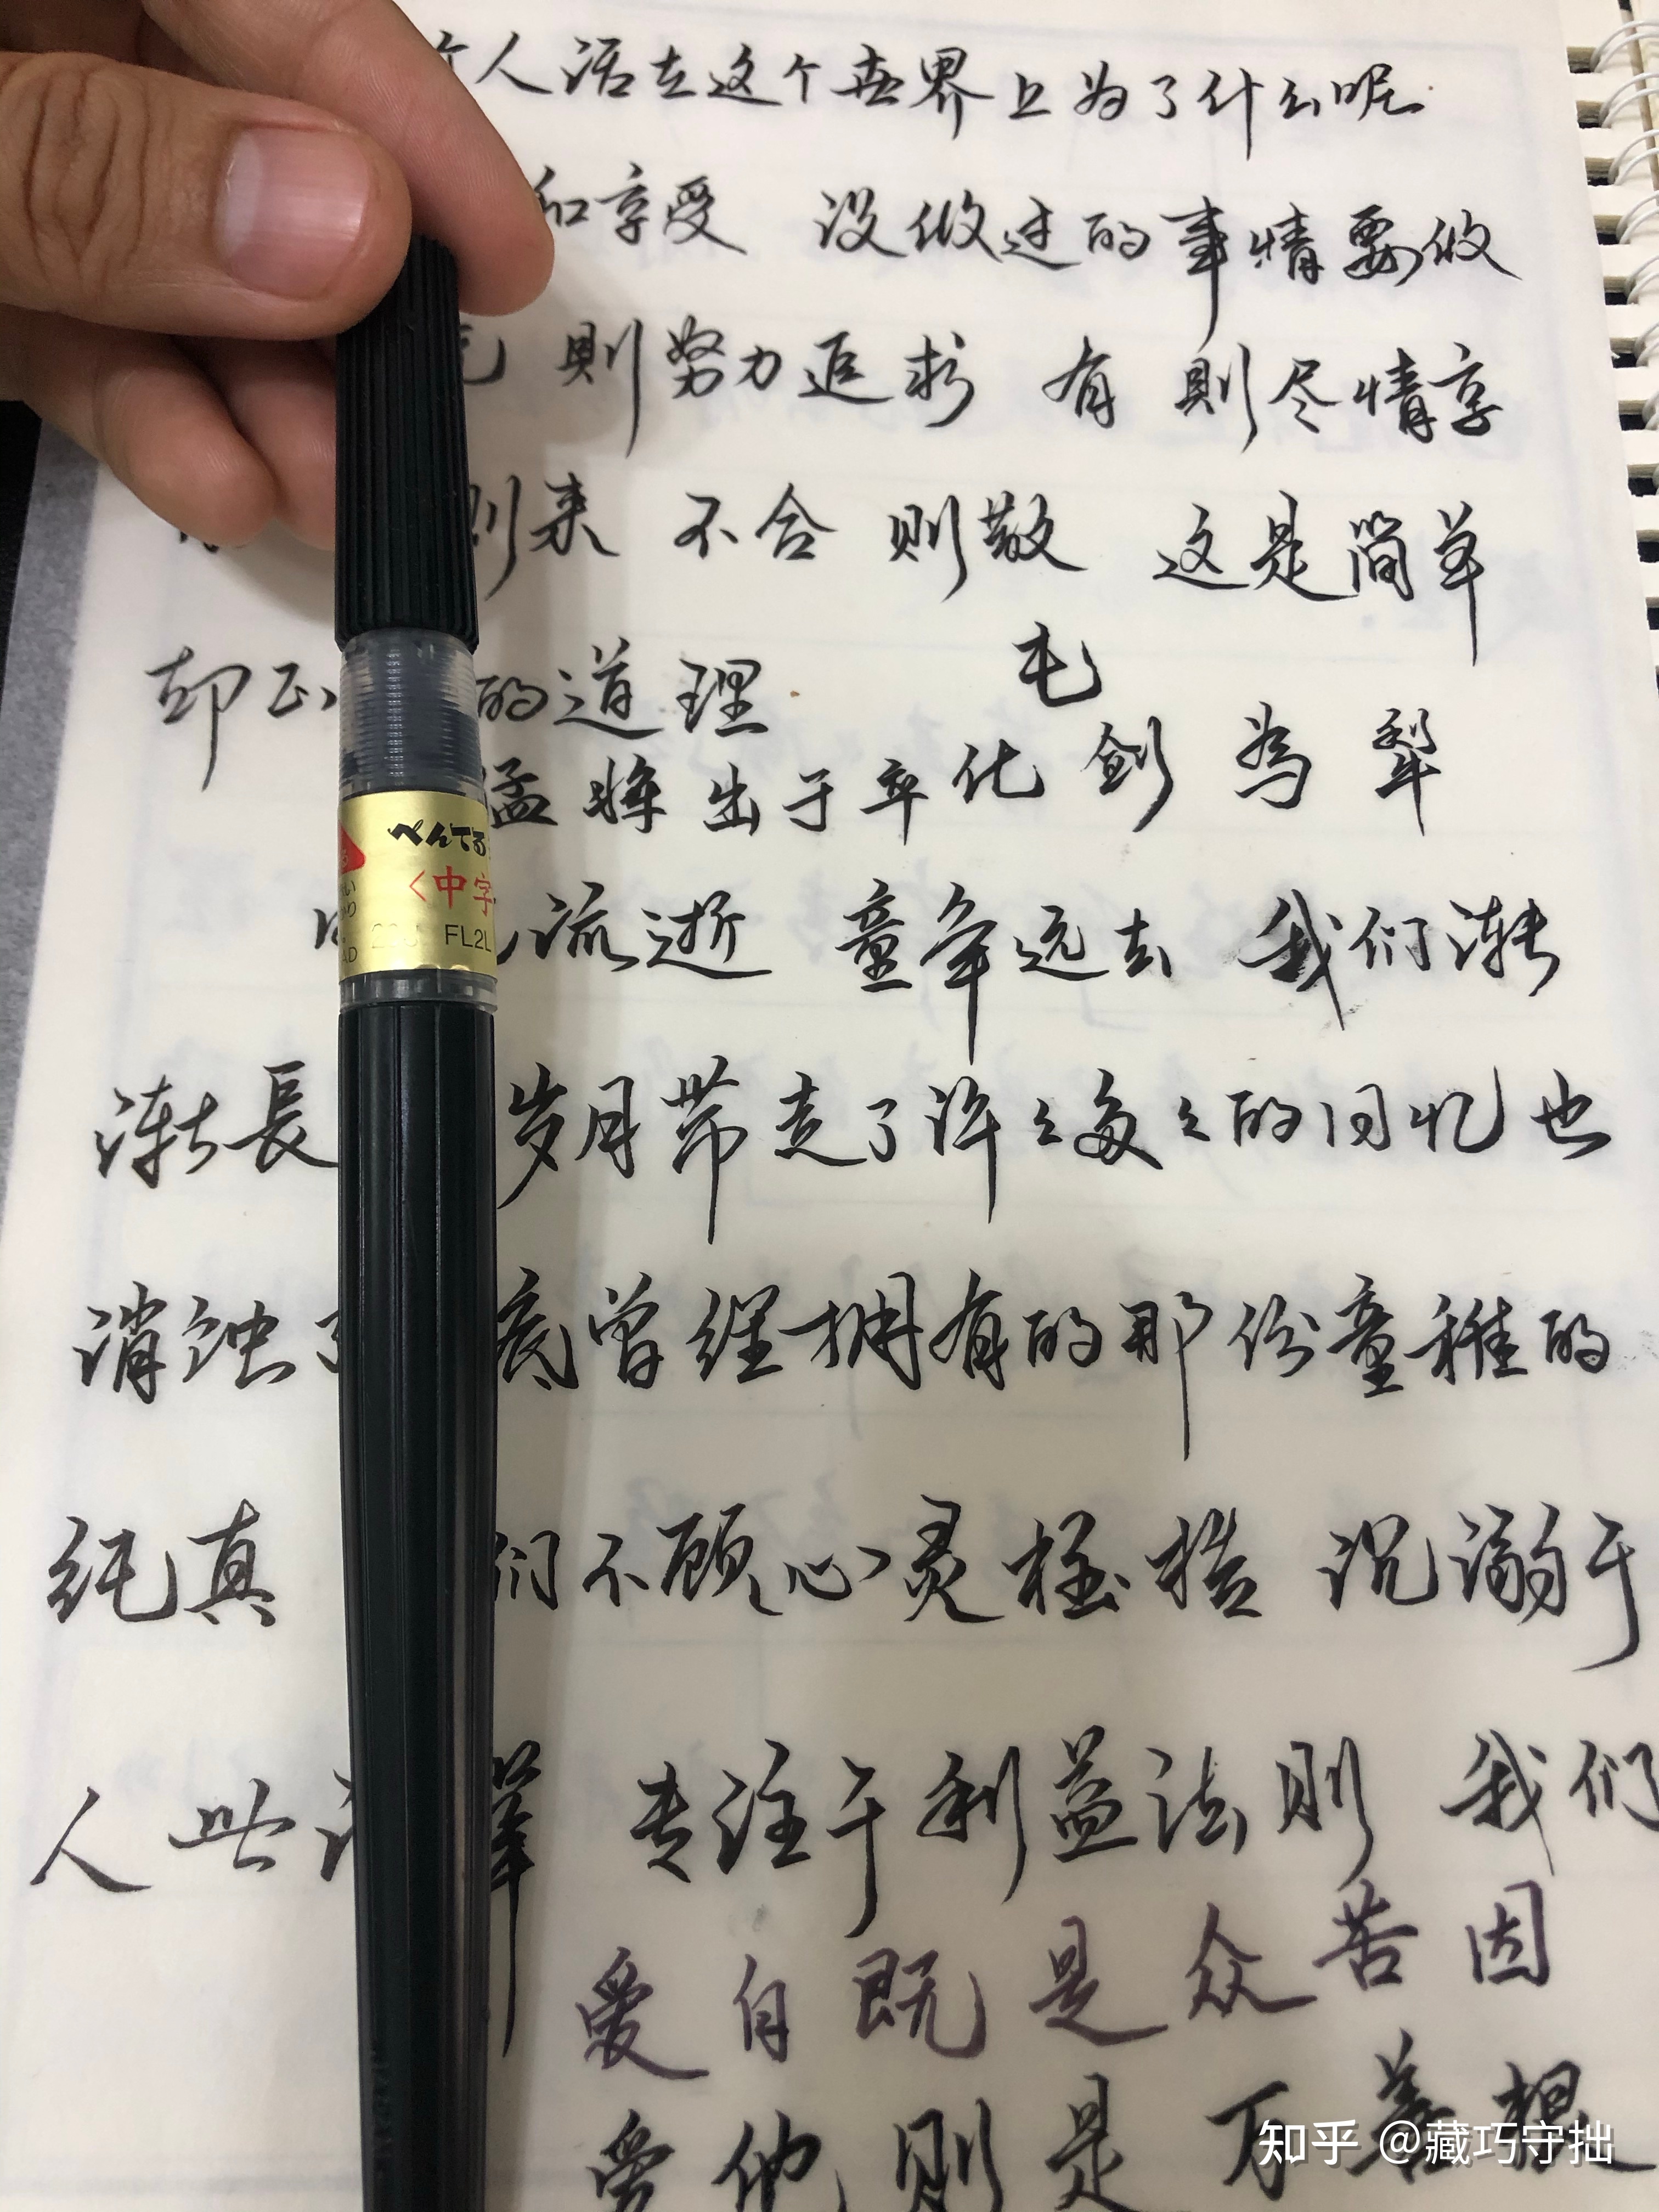 个人活在这个世界上为了什么呢
和享受 没做过的事情要做
则努力追求 有则尽情享
则来 不合则散 这是简单
却正的道理
毛
猛将出于卒化剑为犁
流逝 童年远去 我们渐
渐長 岁月带走了许々多々的回忆也
消蚀了底曾经拥有的那份童稚的
纯真 们不顾心灵桎梏 沉溺于
人世 专注于利益法则 我们
爱自既是众苦因
爱他则是万善根
ぺんてる
<中字
FL2L
知乎 @藏巧守拙